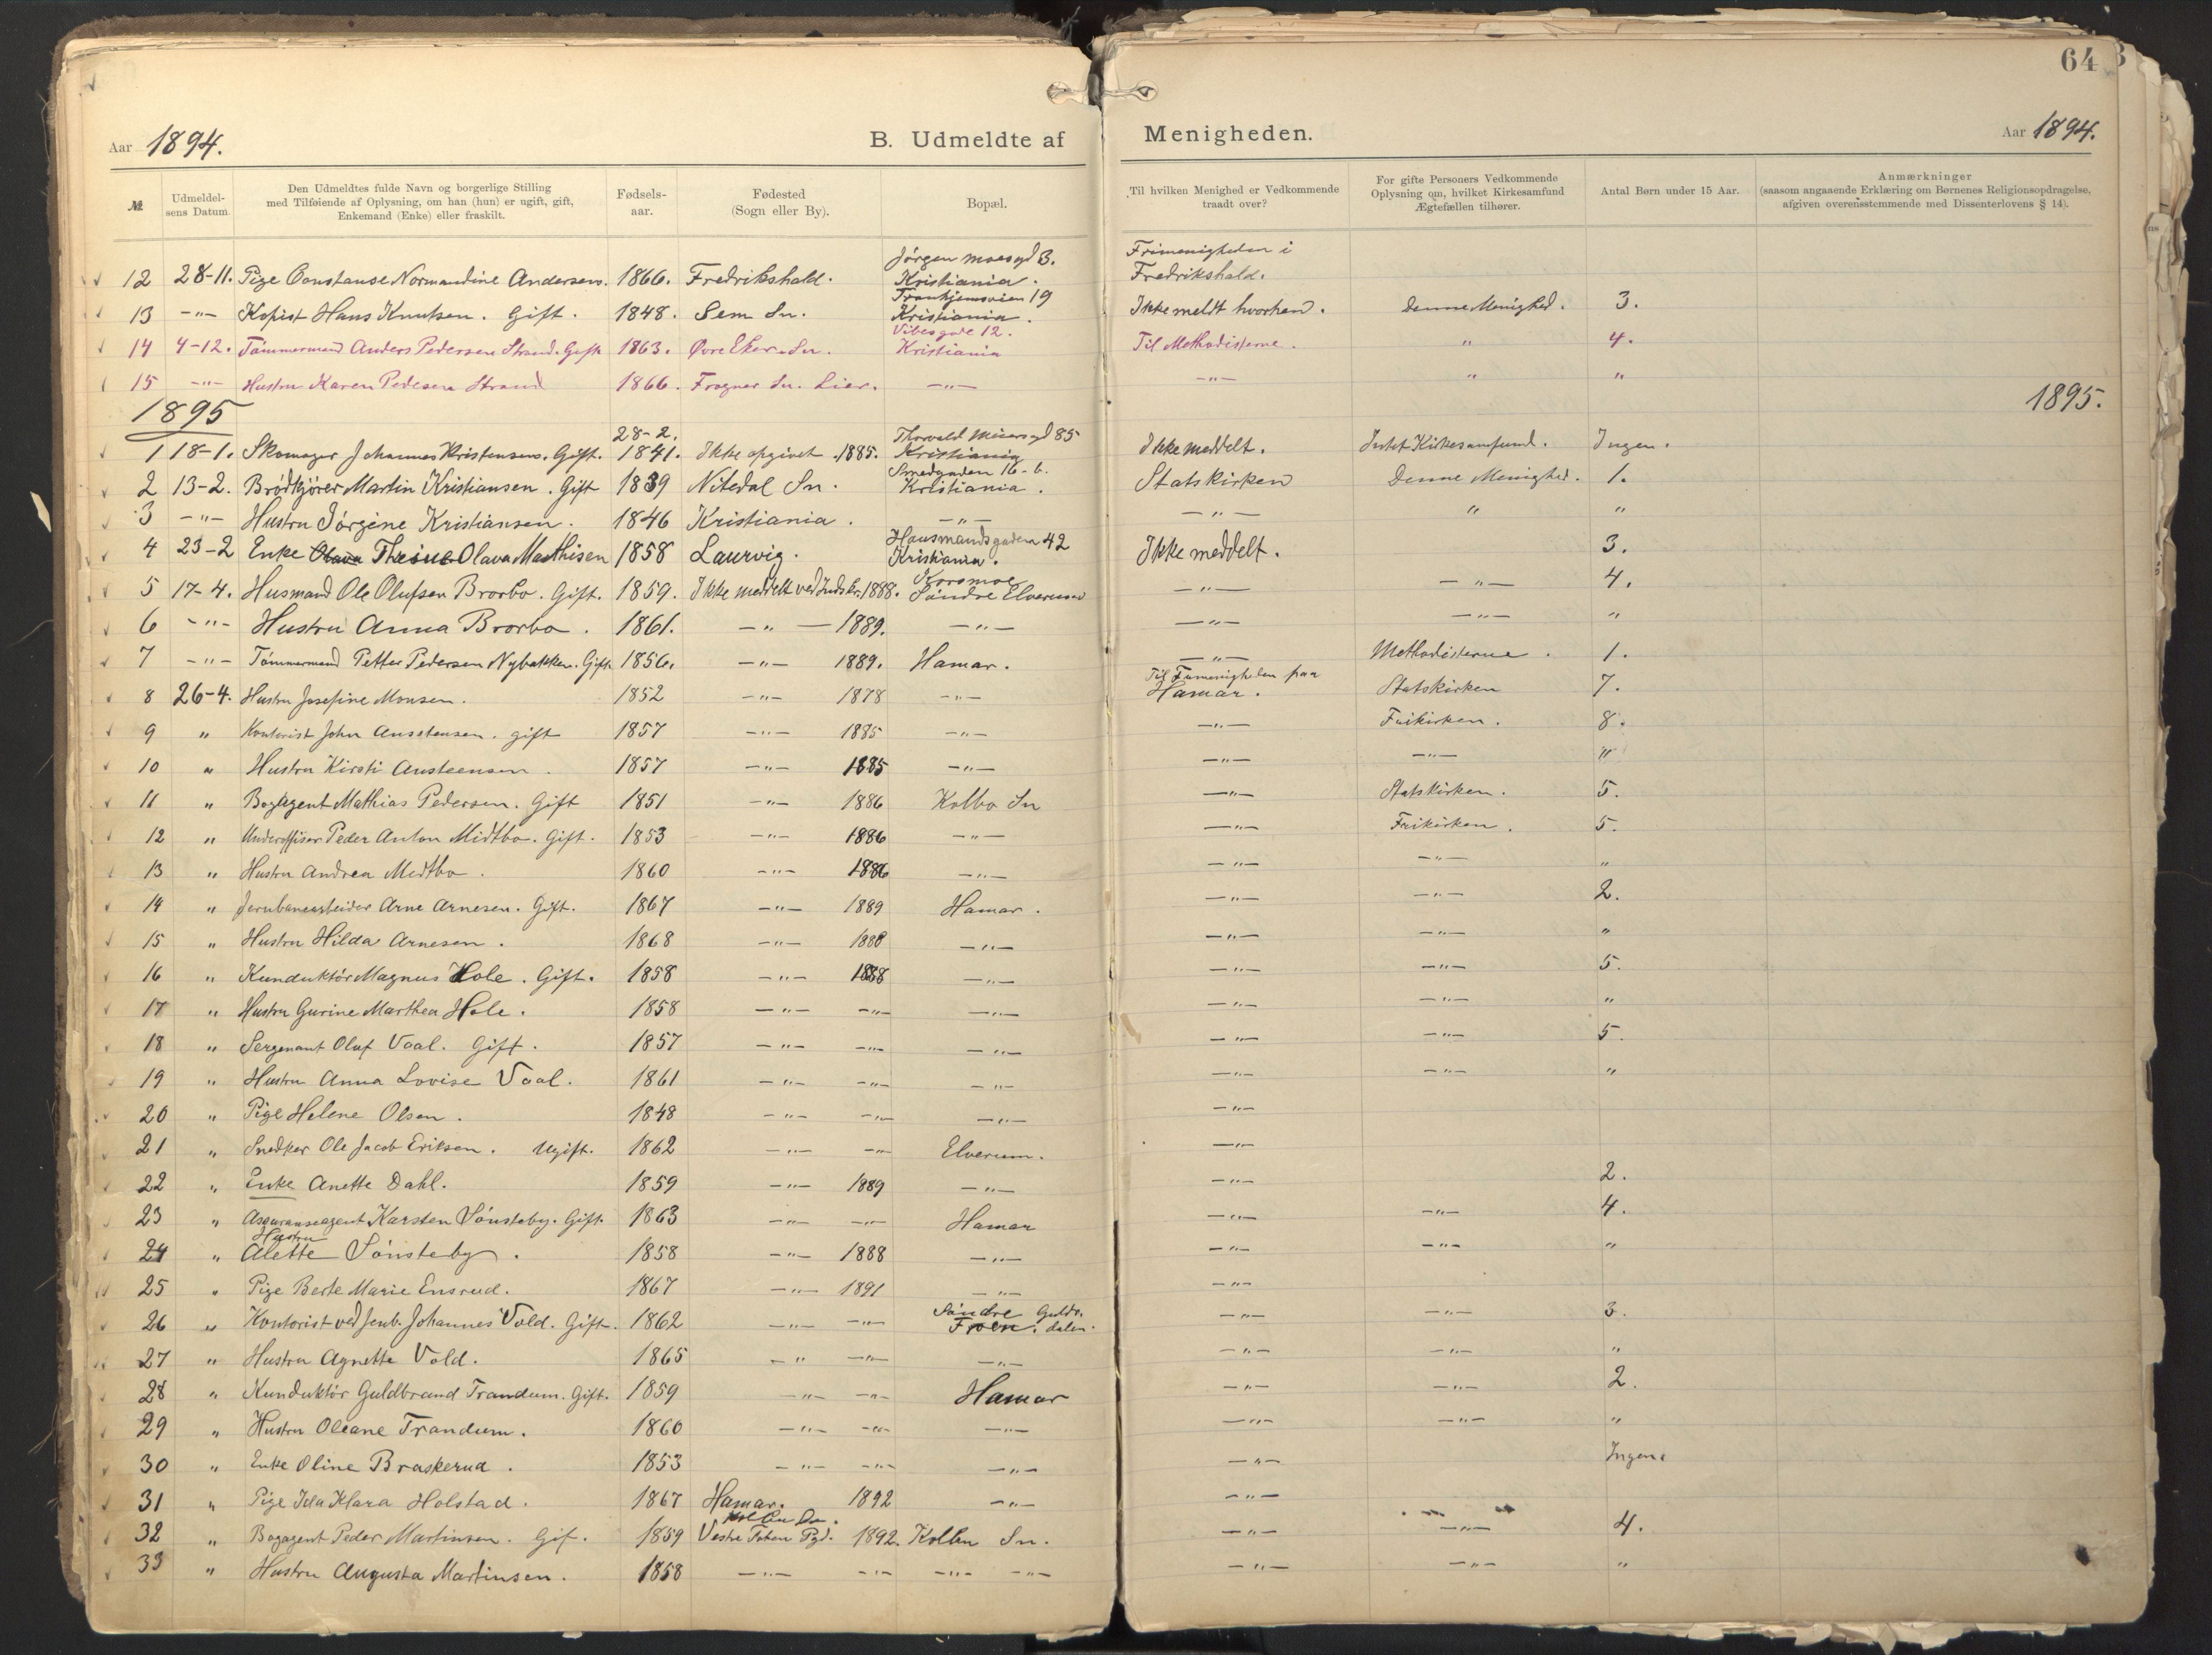 64
Aar 1894.
B. Udmeldte af Menigheden.
Aar 1894.
№ | Udmeldelsens Datum. | Den Udmeldtes fulde Navn og borgerlige Stilling med Tilføiende af Oplysning, om han (hun) er ugift, gift, Enkemand (Enke) eller fraskilt. | Fødselsaar. | Fødested (Sogn eller By). | Bopæl. | Til hvilken Menighed er Vedkommende traadt over? | For gifte Personers Vedkommende Oplysning om, hvilket Kirkesamfund Ægtefællen tilhører. | Antal Børn under 15 Aar. | Anmærkninger (saasom angaaende Erklæring om Børnenes Religionsopdragelse, afgiven overensstemmende med Dissenterlovens § 14).
12 28-11. Pige Constanse Normandine Andersen. 1866. Fredrikshald. Jörgen moesgd 3. Kristiania. Frimenigheden i Fredrikshald.
13 -"- Kopist Hans Knutsen. Gift. 1848. Sem Sn. Trondhjemsveien 19 Kristiania. Ikke meldt hvorhen. Denne Menighed. 3.
14 4-12. Tömmermand Anders Pedersen Strand. Gift 1863. Øvre Eker Sn. Vibesgade 12. Kristiania Til Methodisterne. " 4.
15 -"- Hustru Karen Pedersen Strand 1866. Frogner Sn. Lier. -"- -"- " "
1895
1895.
1 18-1. Skomager Johannes Kristensen. Gift. 28-2. 1841. Ikke opgivet. 1885. Thorvald Meiersgd 85 Kristiania Ikke meddelt. Intet Kirkesamfund. Ingen.
2 13-2. Brödkjörer Martin Kristiansen. Gift 1839 Nitedal Sn. Smedgaden 16-b. Kristiania. Statskirken Denne Menighed. 1.
3 -"- Hustru Jörgine Kristiansen. 1846 Kristiania. -"- -"- " "
4 23-2 Enke Olava Thrine Olava Mathisen 1858 Laurvig. Hausmandsgaden 42 Kristiania. Ikke meddelt. 3.
5 17-4. Husmand Ole Olufsen Brorbo. Gift. 1859. Ikke meddelt ved Indskr. 1888. Koromoe Söndre Elverum -"- -"- 4.
6 -"- Hustru Anna Brorbo. 1861. -"- 1889. -"- -"- -"- "
7 -"- Tömmermand Petter Pedersen Nybakken. Gift 1856. -"- 1889. Hamar. -"- Methodisterne. 1.
8 26-4. Hustru Josefine Monsen. 1852 -"- 1878 -"- Til Frimenigheden paa Hamar. Statskirken 7.
9 " Kontorist John Austensen. gift 1857 -"- 1885 -"- -"- Frikirken. 8.
10 " Hustru Kirsti Austeensen. 1857 -"- 1885 -"- -"- -"- "
11 " Bogagent Mathias Pedersen. Gift 1851 -"- 1886 Kolbo Sn -"- Statskirken. 5.
12 " Underoffiser Peder Anton Midtbo. Gift. 1853 -"- 1886 -"- -"- Frikirken. 5.
13 " Hustru Andrea Medtbo. 1860 -"- 1886 -"- -"- -"- "
14 " Jernbanearbeider Arne Arnesen. Gift. 1867 -"- 1889 Hamar. -"- -"- 2.
15 " Hustru Hilda Arnesen. 1868 -"- 1888 -"- -"- -"- "
16 " Kunduktör Magnus Hole. Gift. 1858 -"- 1888 -"- -"- -"- 5.
17 " Hustru Gurine Marthea Hole. 1858 -"- -"- -"- -"- -"- "
18 " Sergenant Olaf Vaal. Gift. 1857 -"- -"- -"- -"- -"- 5.
19 " Hustru Anna Lovise Vaal. 1861 -"- -"- -"- -"- -"- "
20 " Pige Helene Olsen. 1848 -"- -"- -"- -"-
21 " Snedker Ole Jacob Eriksen. Ugift. 1862 -"- -"- Elverum. -"-
22 " Enke Anette Dahl. 1859 -"- 1889 -"- -"- 2.
23 " Asguranseagent Karsten Sönsteby. Gift. 1863 -"- -"- Hamar -"- -"- 4.
24 " Hustru Alette Sönsteby. 1858 -"- 1888 -"- -"- -"- "
25 " Pige Berte Marie Ensrud. 1867 -"- 1891 -"- -"-
26 " Kontorist ved Jenb. Johannes Vold. Gift. 1862 -"- -"- Söndre Guldr. Froen. dalen. -"- -"- 3.
27 " Hustru Agnette Vold. 1865 -"- -"- -"- -"- -"- "
28 " Kunduktör Guldbrand Trandum. Gift. 1859 -"- -"- Hamar -"- -"- 2.
29 " Hustru Oleane Trandum. 1860 -"- -"- -"- -"- -"- "
30 " Enke Oline Braskerud. 1853 -"- -"- -"- -"- Ingen.
31 " Pige Ida Klara Holstad. 1867 Hamar. 1892 -"- -"-
32 " Bogagent Peder Martinsen. Gif. 1859 Kolbu Sn. Vestre Toten Pgd. 1892. Kolbu Sn. -"- -"- 4.
33 " Hustru Augusta Martinsen. 1858 -"- -"- -"- -"- -"- -"- "